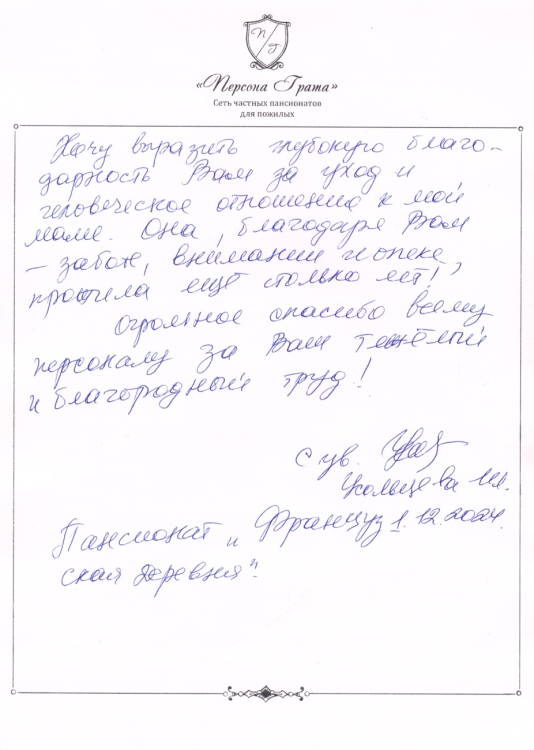 П Г
«Персона Грата»
Сеть частных пансионатов
для пожилых
Хочу выразить глубокую благо-
дарность Вам за уход и
человеческое отношение к моей
маме. Она, благодаря Вам
– заботе, внимании и опеке,
прожила ещё столько лет!
Огромное спасибо всему
персоналу за Ваш тяжёлый
и благородный труд!
с ув.
1.12.2024.
Пансионат "Француз
ская деревня".